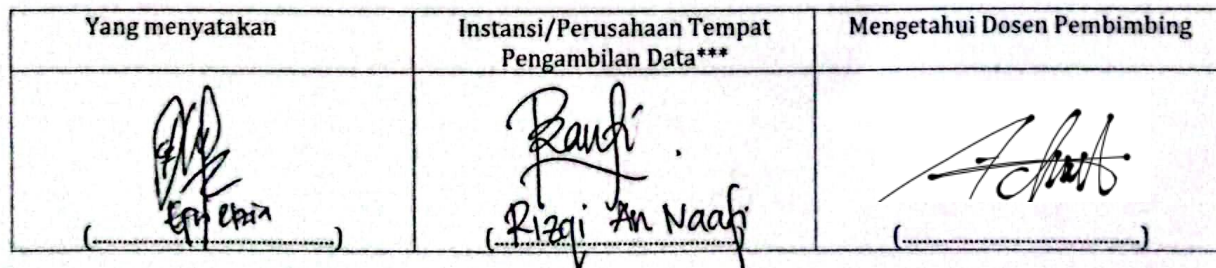 Yang menyatakan
Instansi/Perusahaan Tempat
Pengambilan Data***
Mengetahui Dosen Pembimbing
(..............................)
Rizqi An Naafi
(..............................)
(..............................)